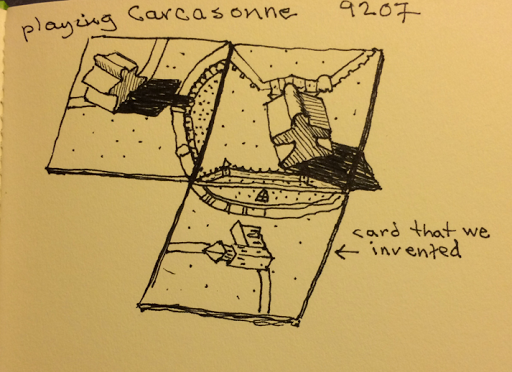 playing Carcasonne 9207
card that we
← invented